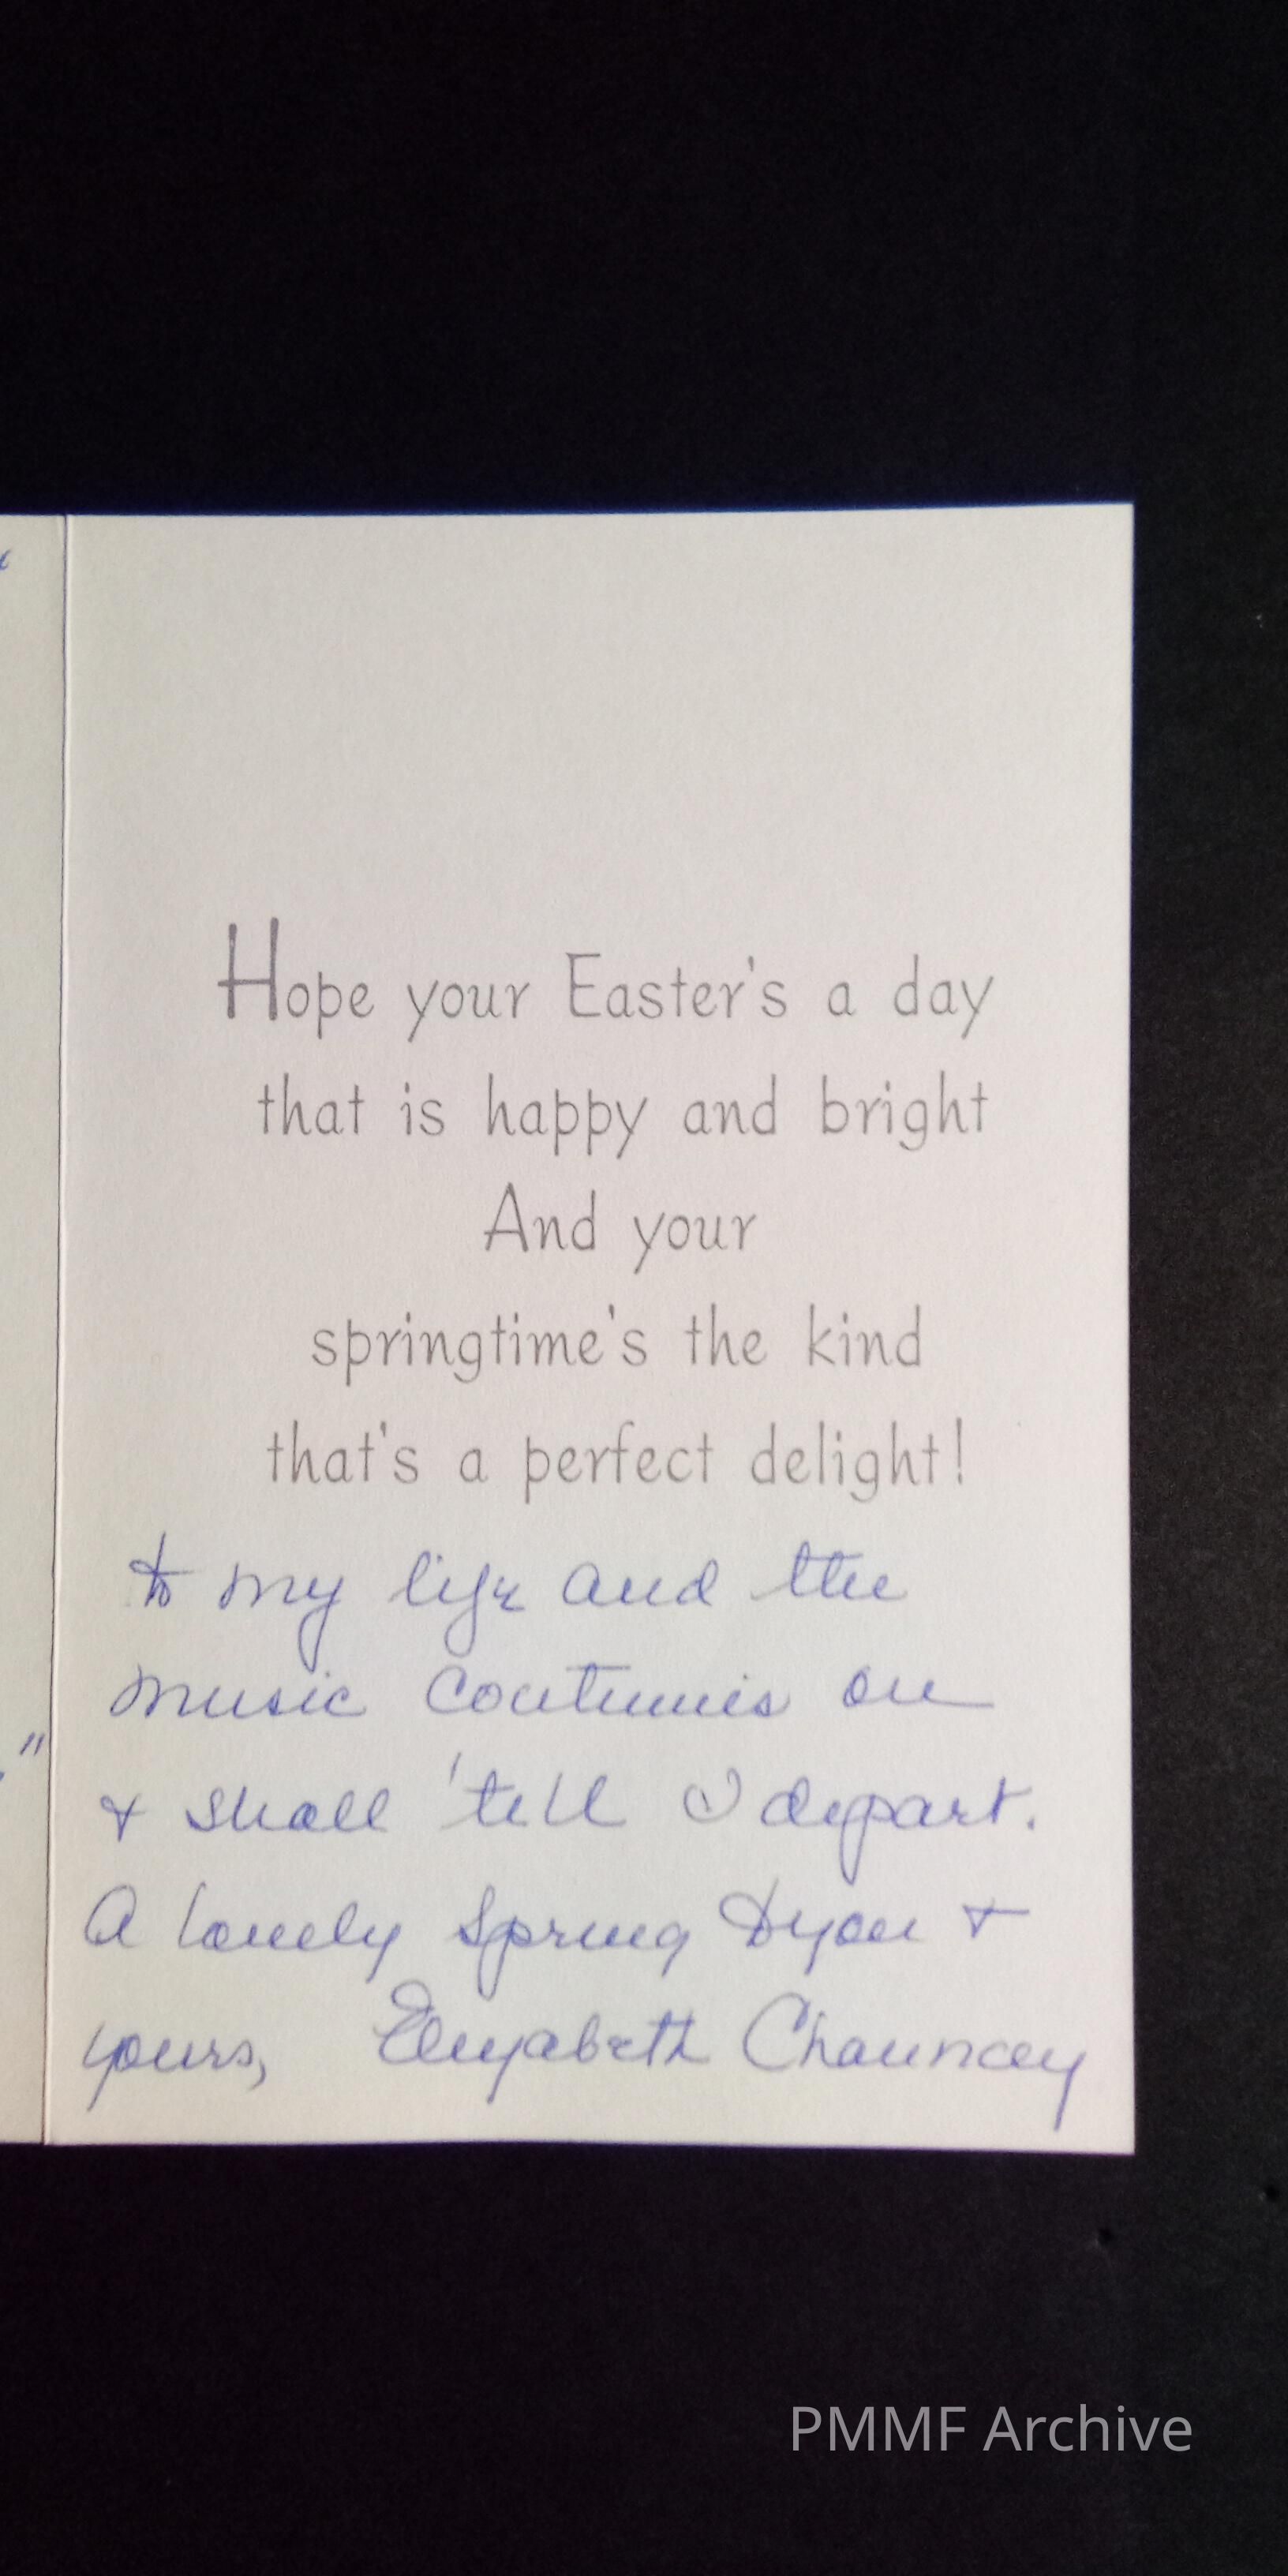 Hope your Easter's a day
that is happy and bright
And your
springtime's the kind
that's a perfect delight!
to my life and the
music continues on
& shall 'till I depart.
A lovely Spring to you &
yours, Elizabeth Chauncey
"
PMMF Archive